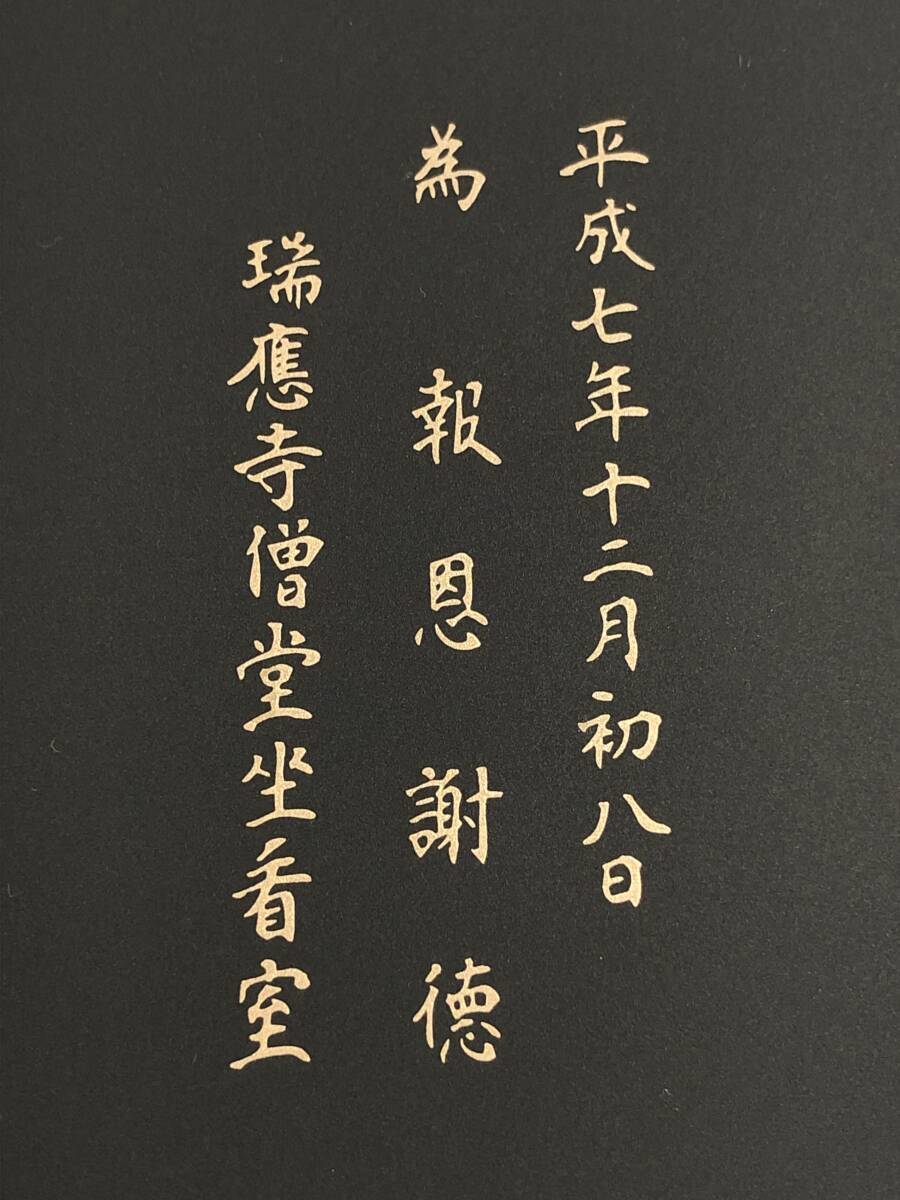 平成七年十二月初八日
為報恩謝徳
瑞應寺僧堂坐看室